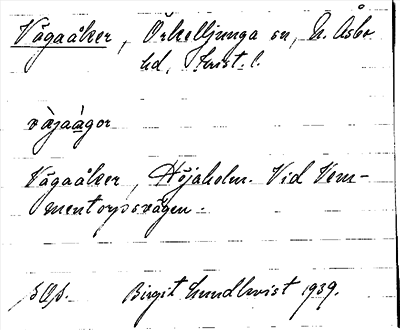 Vägaåker, Örkelljunga sn, N. Åsbo
hd, Krist. l.
vàjaàgor
Vägaåker, Höjaholm. Vid Vem-
mentorpsvägen.
Birgit Lundkvist 1939.